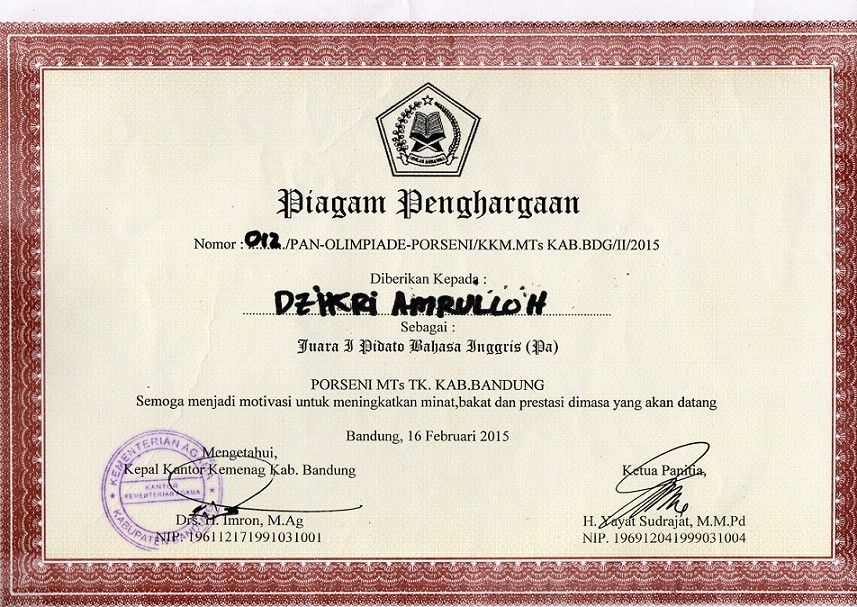 IKHLAS BERAMAL
Piagam Penghargaan
Nomor : 012../PAN-OLIMPIADE-PORSENI/KKM.MTs KAB.BDG/II/2015
Diberikan Kepada :
DZIKRI AMRULLOH
Sebagai :
Juara I Pidato Bahasa Inggris (Pa)
PORSENI MTs TK. KAB.BANDUNG
Semoga menjadi motivasi untuk meningkatkan minat,bakat dan prestasi dimasa yang akan datang
Bandung, 16 Februari 2015
Mengetahui,
Kepal Kantor Kemenag Kab. Bandung
Ketua Panitia,
KEMENTERIAN AGAMA
KANTOR
KEMENTERIAN AGAMA
KABUPATEN BANDUNG
Drs. H. Imron, M.Ag
H. Yayat Sudrajat, M.M.Pd
NIP. 196112171991031001
NIP. 196912041999031004